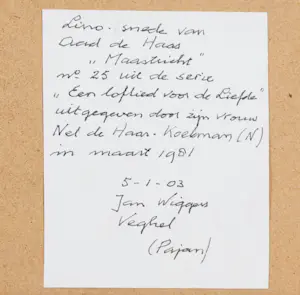 Lino-snede van
Aad de Haas
„ Maastricht "
no 25 uit de serie
„ Een loflied voor de Liefde "
uitgegeven door zijn vrouw
Nel de Haas-Koekman (N)
in maart 1981
5-1-03
Jan Wiggers
Veghel
(Pajan)